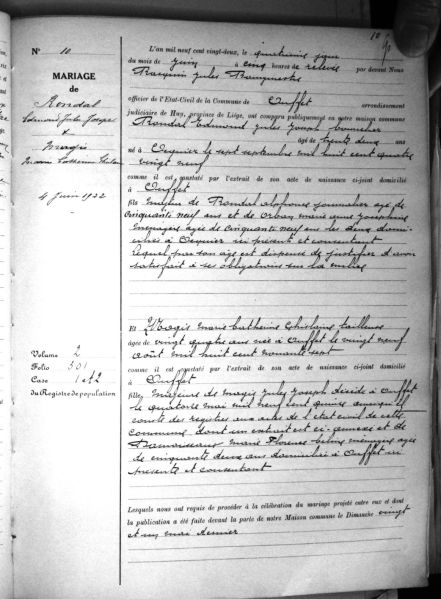 10
N° 10
MARIAGE
DE
Rondal
Edmond Jules Joseph
&
Magis
Marie Catherine Ghislaine
4 Juin 1922
L'an mil neuf cent vingt-deux, le quatrième jour
du mois de Juin à cinq heures de relevée par devant Nous
Jules
officier de l'Etat-Civil de la Commune de Ouffet arrondissement
judiciaire de Huy, province de Liége, ont comparu publiquement en notre maison commune
Rondal Edmond Jules Joseph
âgé de trente deux ans
né à le sept septembre mil huit cent quatre
vingt neuf
comme il est constaté par l'extrait de son acte de naissance ci-joint domicilié
à Ouffet
fils majeur de Rondal Alphonse journalier âgé de
cinquante neuf ans et de Marie Anne Joséphine
ménagère âgée de cinquante neuf ans les deux domi-
ciliés à ici présents et consentant
lequel par son âge est dispensé de justifier d'avoir
satisfait à ses obligations sur la milice
Et Magis Marie Catherine Ghislaine tailleuse
âgée de vingt quatre ans née à Ouffet le vingt neuf
août mil huit cent nonante sept
comme il est constaté par l'extrait de son acte de naissance ci-joint domicilié
à Ouffet
fille majeure de Magis Jules Joseph décédé à Ouffet
le quatorze mai mil neuf cent quinze ainsi qu'il
conste des registres aux actes de l'état civil de cette
commune dont un extrait est ci-annexé et de
Marie Florence ménagère âgée
de cinquante deux ans domiciliée à Ouffet ici
présente et consentant
Volume 2
Folio 301
Case 1 et 2
du Registre de population
Lesquels nous ont requis de procéder à la célébration du mariage projeté entre eux et dont
la publication a été faite devant la porte de notre Maison commune le Dimanche vingt
et un mai dernier